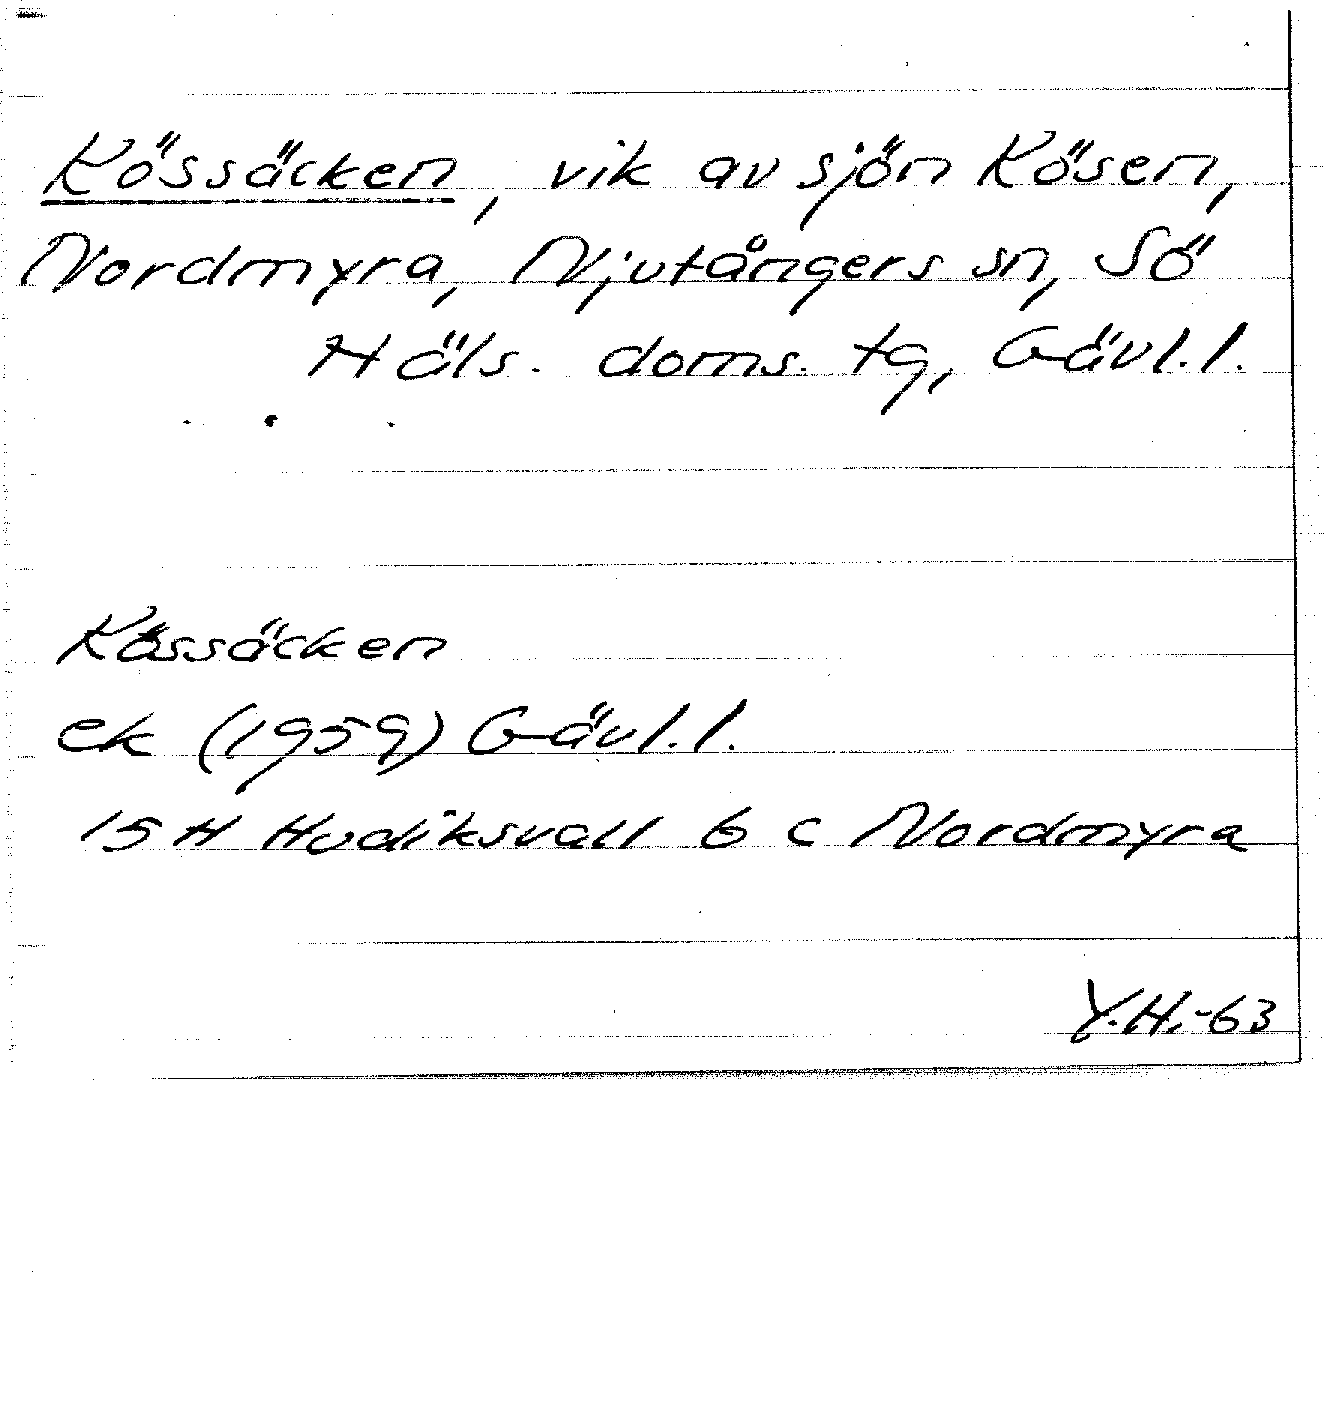 Kössäcken, vik av sjön Kösen,
Nordmyra, Njutångers sn, Sö
Häls. doms. tg, Gävl.l.
Kössäcken
ek (1959) Gävl.l.
15 H Hudiksvall 6 c Nordmyra
Y.H.-63